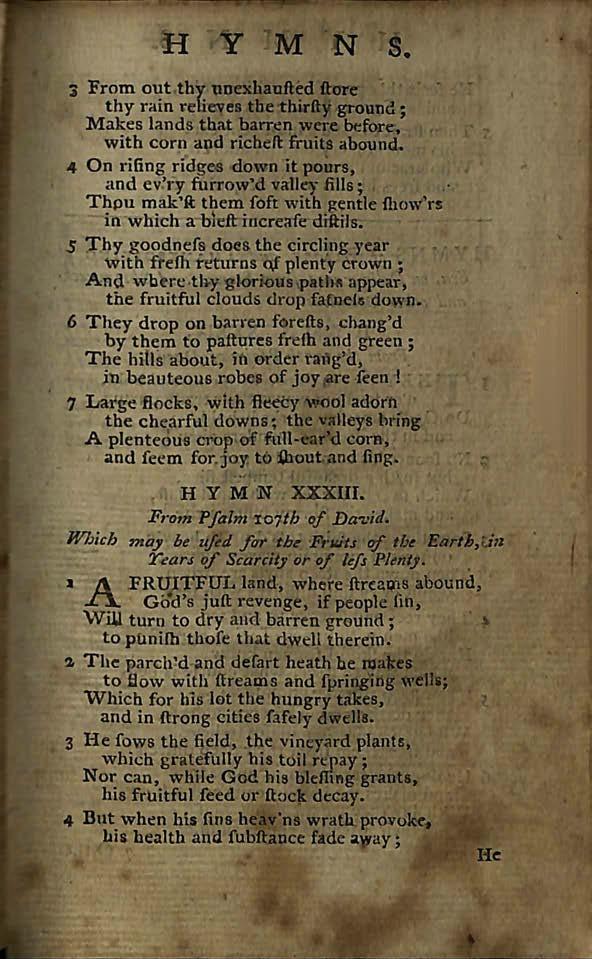 HYMNS.
3 From out thy unexhauſted ſtore
thy rain relieves the thirſty ground;
Makes lands that barren were before,
with corn and richeſt fruits abound.
4 On riſing ridges down it pours,
and ev'ry furrow'd valley fills;
Thou mak'ſt them ſoft with gentle ſhow'rs
in which a bleſt increaſe diſtils.
5 Thy goodneſs does the circling year
with freſh returns of plenty crown;
And where thy glorious paths appear,
the fruitful clouds drop fatneſs down.
6 They drop on barren foreſts, chang'd
by them to paſtures freſh and green;
The hills about, in order rang'd,
in beauteous robes of joy are ſeen!
7 Large flocks, with fleecy wool adorn
the chearful downs; the valleys bring
A plenteous crop of full-ear'd corn,
and ſeem for joy to ſhout and ſing.
HYMN XXXIII.
From Pſalm 107th of David.
Which may be uſed for the Fruits of the Earth, in
Years of Scarcity or of leſs Plenty.
1 A FRUITFUL land, where ſtreams abound,
God's juſt revenge, if people ſin,
Will turn to dry and barren ground;
to puniſh thoſe that dwell therein.
2 The parch'd and deſart heath he makes
to flow with ſtreams and ſpringing wells;
Which for his lot the hungry takes,
and in ſtrong cities ſafely dwells.
3 He ſows the field, the vineyard plants,
which gratefully his toil repay;
Nor can, while God his bleſſing grants,
his fruitful ſeed or ſtock decay.
4 But when his ſins heav'ns wrath provoke,
his health and ſubſtance fade away;
He